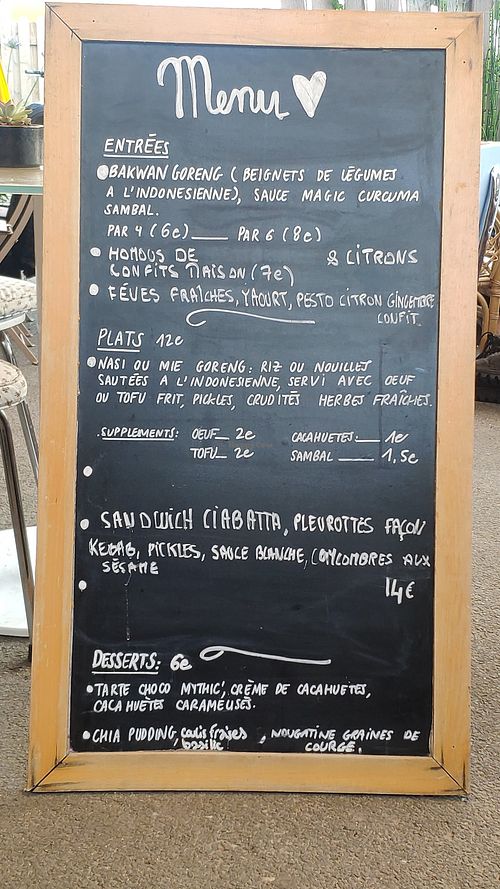 Menu
ENTRÉES
BAKWAN GORENG ( BEIGNETS DE LÉGUMES
A L'INDONESIENNE), SAUCE MAGIC CURCUMA
SAMBAL.
PAR 4 (6e) PAR 6 (8e)
HOMOUS DE & CITRONS
CONFITS MAISON (7e)
FÉVES FRAÎCHES, YAOURT, PESTO CITRON GINGEMBRE
CONFIT.
PLATS 12e
NASI OU MIE GORENG: RIZ OU NOUILLES
SAUTÉES A L'INDONESIENNE, SERVI AVEC OEUF
OU TOFU FRIT, PICKLES, CRUDITÉS HERBES FRAÎCHES.
SUPPLEMENTS: OEUF 2e CACAHUETES 1e
TOFU 2e SAMBAL 1,5e
SANDWICH CIABATTA, PLEUROTTES FAÇON
KEBAB, PICKLES, SAUCE BLANCHE, CONCOMBRES AUX
SÉSAME
14€
DESSERTS: 6e
TARTE CHOCO MYTHIC, CRÈME DE CACAHUETES,
CACAHUÈTES CARAMELISÉS.
CHIA PUDDING, , NOUGATINE GRAINES DE
basilic COURGE.